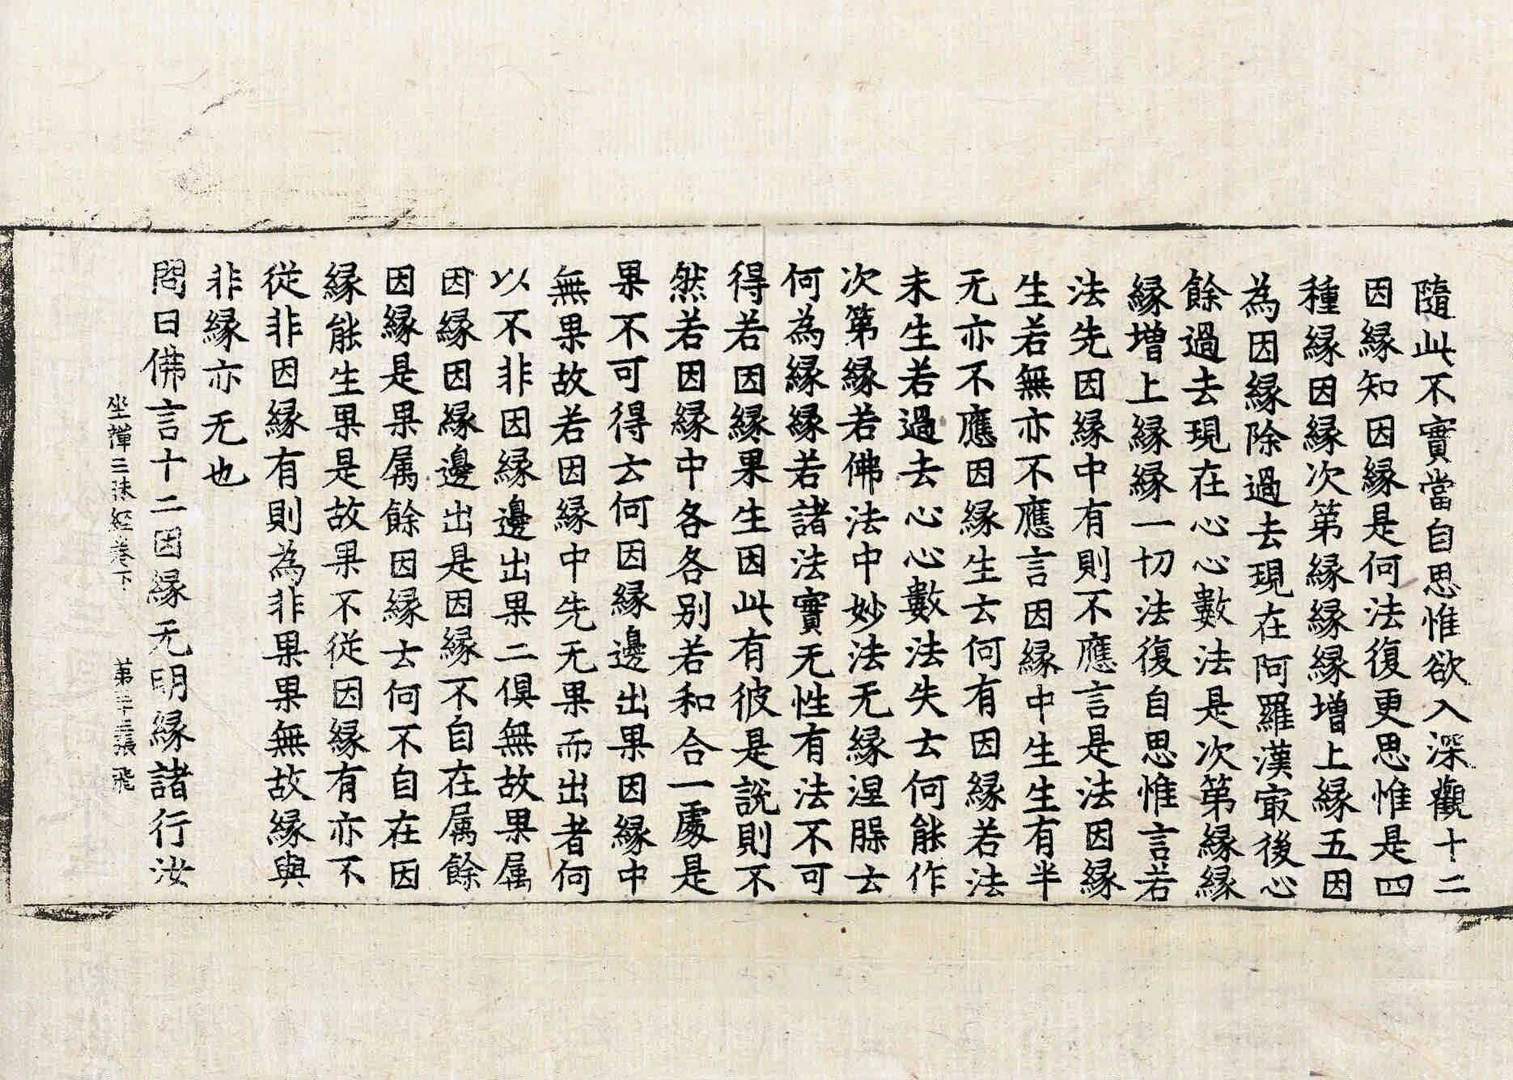 隨此不實當自思惟欲入深觀十二
因縁知因縁是何法復更思惟是四
種縁因縁次第縁縁縁增上縁五因
為因縁除過去現在阿羅漢㝡後心
餘過去現在心心數法是次第縁縁
縁增上縁縁一切法復自思惟言若
法先因縁中有則不應言是法因縁
生若無亦不應言因縁中生生有半
无亦不應因縁生云何有因縁若法
未生若過去心心數法失云何能作
次第縁若佛法中妙法无縁涅脲云
何為縁縁若諸法實无性有法不可
得若因縁果生因此有彼是說則不
然若因縁中各各别若和合一處是
果不可得云何因縁邊出果因縁中
無果故若因縁中先无果而出者何
以不非因縁邊出果二俱無故果属
因縁因縁邊出是因縁不自在属餘
因縁是果属餘因縁云何不自在因
縁能生果是故果不從因縁有亦不
從非因縁有則為非果果無故縁與
非縁亦无也
問曰佛言十二因縁无明縁諸行汝
坐禪三昧經卷下 第 張 飛